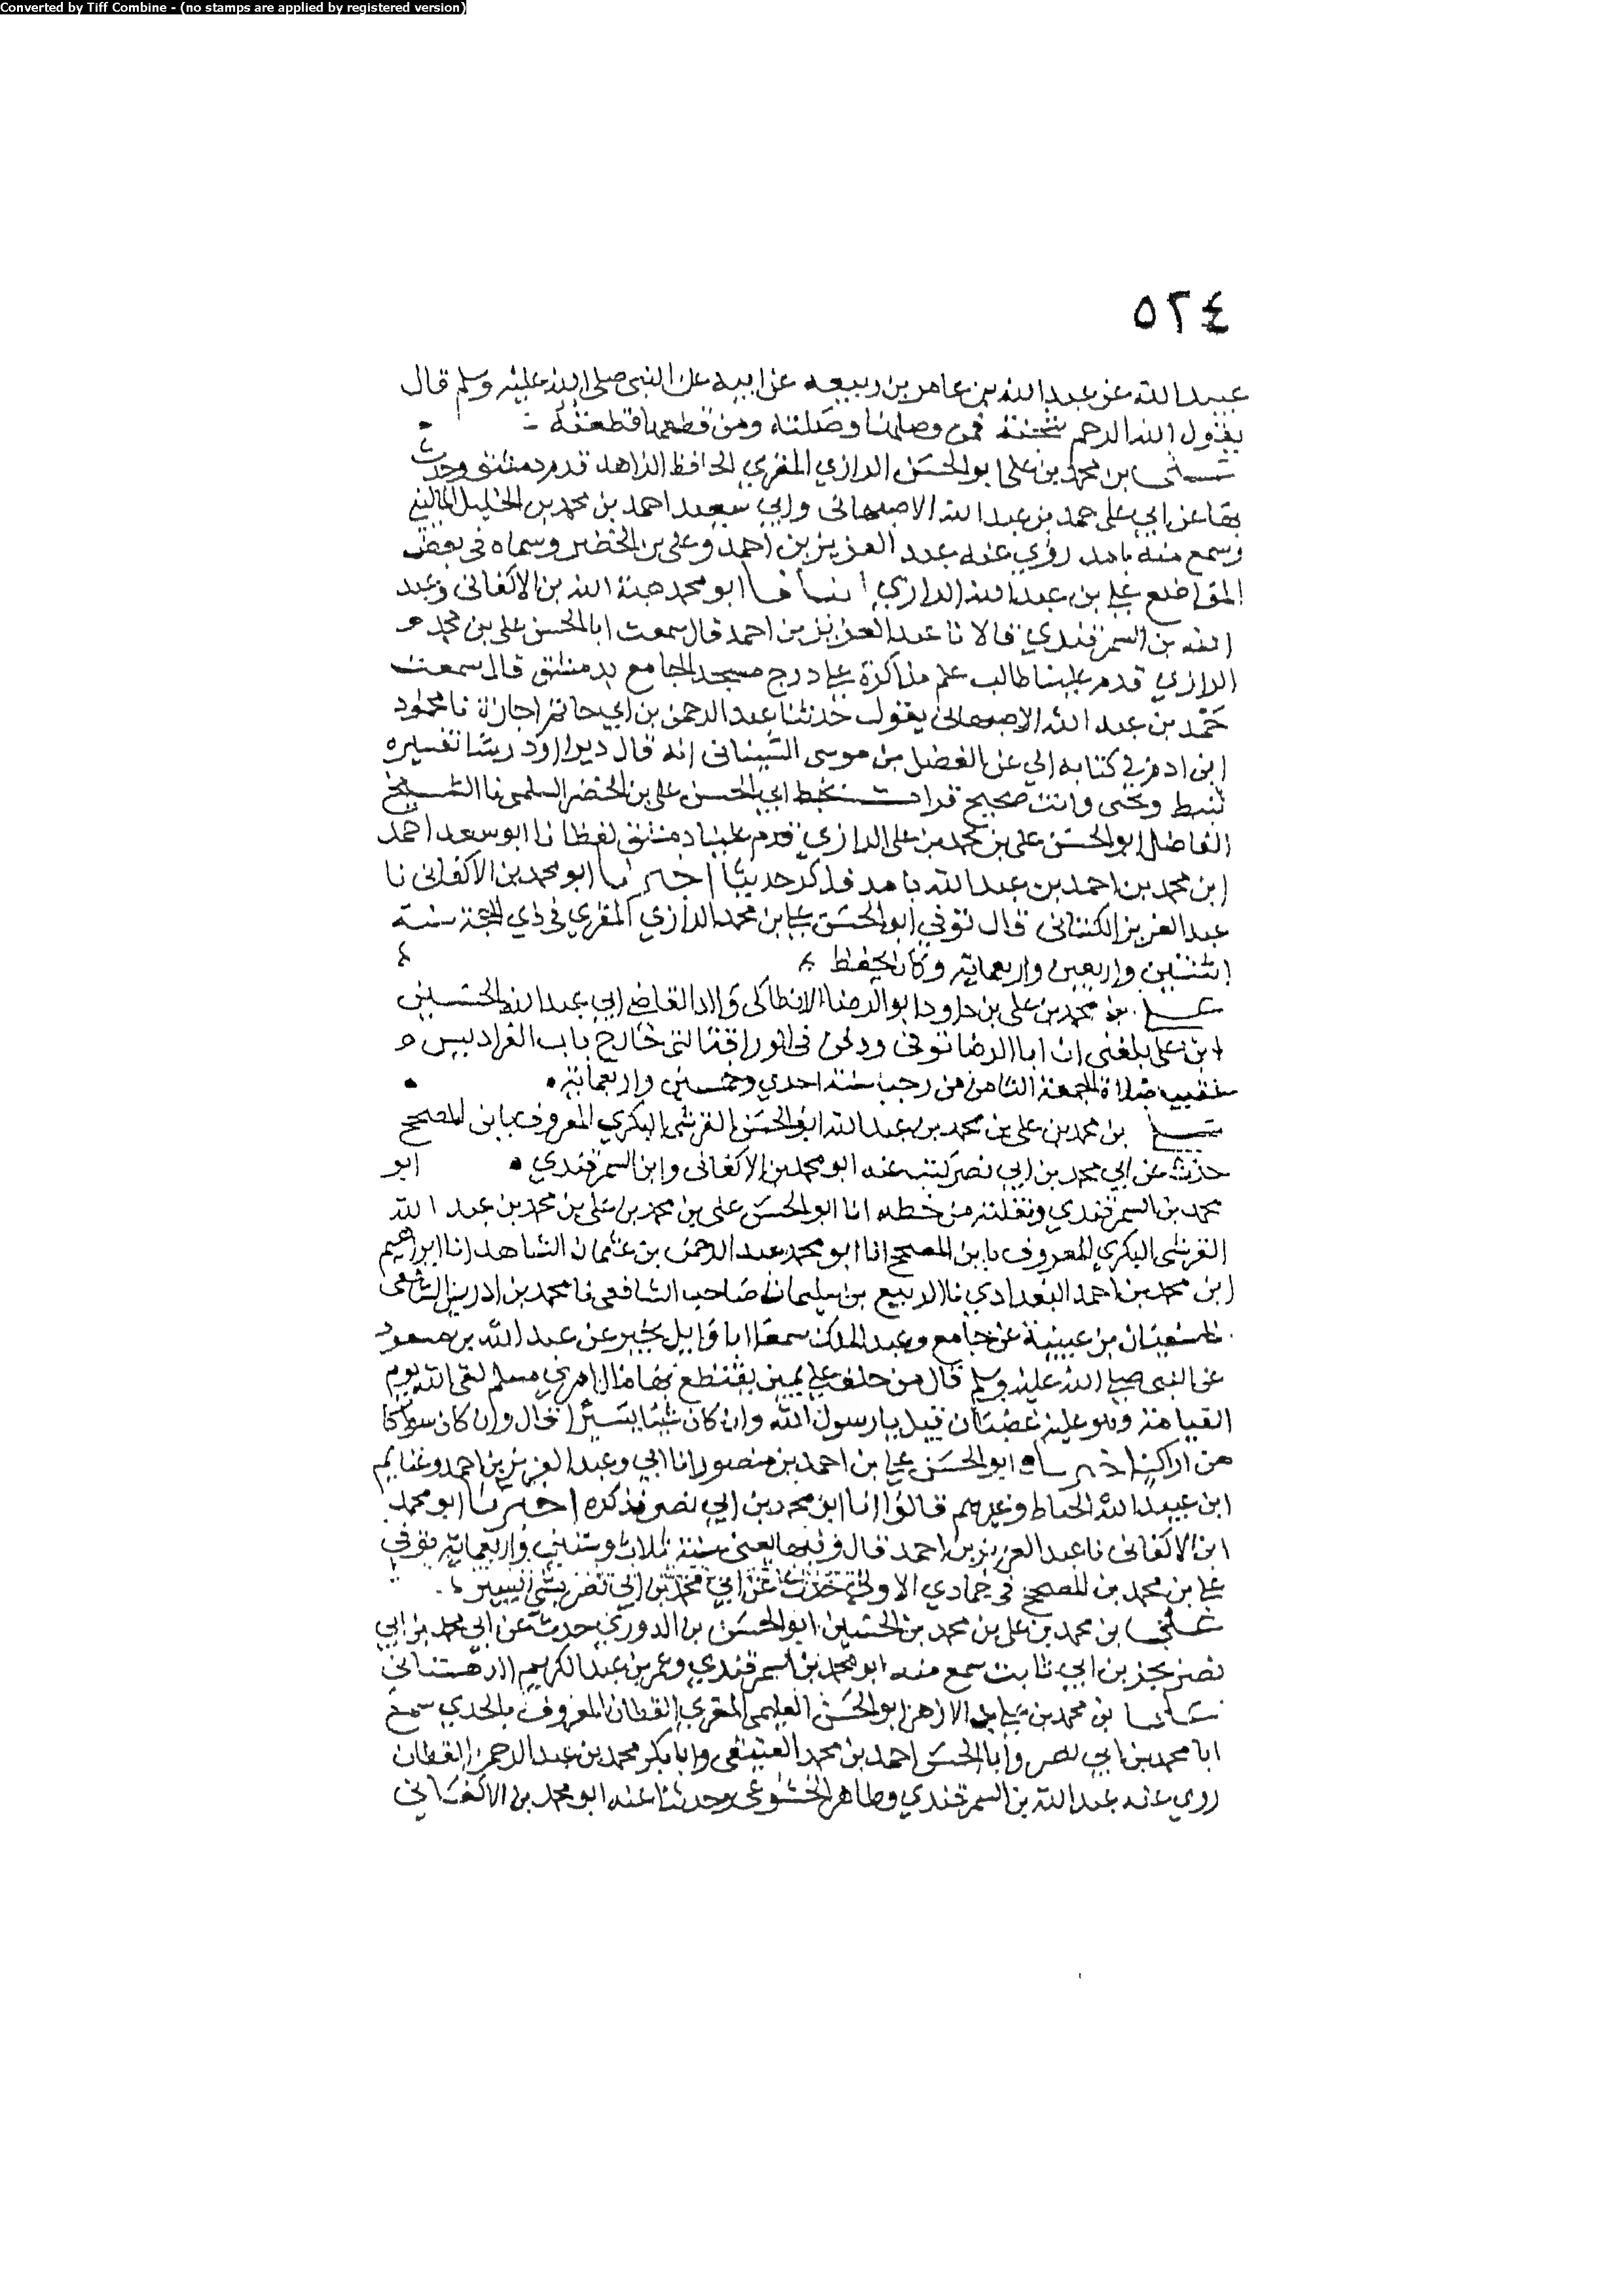 Converted by Tiff Combine - (no stamps are applied by registered version)
٥٢٤
عبيد الله عن عبد الله بن عامر بن ربيعه عن ابيه عن النبي صلى الله عليه وسلم قال
يقول الله الرحم شجنة فمن وصلها وصلته ومن قطعها قطعته
علي بن محمد بن علي ابو الحسن الرازي المقري الحافظ الزاهد قدم دمشق وحدث
بها عن ابي علي حمد بن عبد الله الاصبهاني وابي سعيد احمد بن محمد بن الخليل الماليني
وسمع منه بامد روي عنه عبد العزيز بن احمد وعلي بن الخضر وسماه في بعض
المواضع علي بن عبد الله الرازي انبانا ابو محمد هبة الله بن الاكفاني وعبد
الله بن السمرقندي قالا نا عبد العزيز بن احمد قال سمعت ابا الحسن علي بن محمد
الرازي قدم علينا طالب علم مذاكرة علي درج مسجد الجامع بدمشق قال سمعت
حمد بن عبد الله الاصبهاني يقول حدثنا عبد الرحمن بن ابي حاتم اجازة نا محمود
ابن ادم في كتابه الي عن الفضل بن موسى السيناني انه قال
وانت صحيح قرات بخط ابي الحسن علي بن الخضر السلمي نا الشيخ
الفاضل ابو الحسن علي بن محمد بن علي الرازي قدم علينا دمشق لفظا نا ابو سعد احمد
ابن محمد بن احمد بن عبد الله بامد فذكر حديثا اخبرنا ابو محمد بن الاكفاني نا
عبد العزيز الكتاني قال توفي ابو الحسن علي بن محمد الرازي المقري في ذي الحجة سنة
اثنتين واربعين واربعماية وكان يحفظ
علي بن محمد بن علي بن داود ابو الرضا الانطاكي والد القاضي ابي عبد الله الحسين
ابن علي بلغني ان ابا الرضا توفي ودفن في التي خارج باب الفراديس
عقيب صلاة الجمعة الثامن من رجب سنة احدي وخمسين واربعماية
علي بن محمد بن علي بن محمد بن عبد الله ابو الحسن القرشي البكري المعروف بابن المصحح
حدث عن ابي محمد بن ابي نصر كتب عنه ابو محمد بن الاكفاني وابن السمرقندي ابو
محمد بن السمرقندي ونقلته من خطه انا ابو الحسن علي بن محمد بن علي بن محمد بن عبد الله
القرشي البكري المعروف بابن المصحح انا ابو محمد عبد الرحمن بن عثمان الشاهد انا ابراهيم
ابن محمد بن احمد البغدادي نا الربيع بن سليمان صاحب الشافعي نا محمد بن ادريس الشافعي
نا سفيان بن عيينة عن جامع وعبد الملك سمعا ابا وايل يخبر عن عبد الله بن مسعود
عن النبي صلى الله عليه وسلم قال من حلف علي يمين يقتطع بها مال امري مسلم لقى الله يوم
القيامة وهو عليه غضبان قيل يا رسول الله وان كان شيئا يسيرا قال وان كان سواكا
من اراك اخبرناه ابو الحسن علي بن احمد بن منصور انا ابي وعبد العزيز بن احمد وغنايم
ابن عبيد الله الخياط وغيرهم قالوا انا ابو محمد بن ابي نصر فذكره اخبرنا ابو محمد
ابن الاكفاني نا عبد العزيز بن احمد قال وفيها يعني سنة ثلاث وستين واربعماية توفي
علي بن محمد بن المصحح في جمادي الاولى حدث عن ابي محمد بن ابي نصر بشي يسير
علي بن محمد بن علي بن محمد بن الحسين ابو الحسن بن الدوري حدث عن ابي محمد بن ابي
نصر بجز بن ابي ثابت سمع منه ابو محمد بن السمرقندي وعمر بن عبد الكريم الدهستاني
علي بن محمد بن علي بن الازهر ابو الحسن العليمي المقري القطان المعروف بالجدي سمع
ابا محمد بن ابي نصر وابا الحسن احمد بن محمد العتيقي وابا بكر محمد بن عبد الرحمن القطان
روي عنه عبد الله بن السمرقندي وطاهر الخشوعي وحدثنا عنه ابو محمد بن الاكفاني